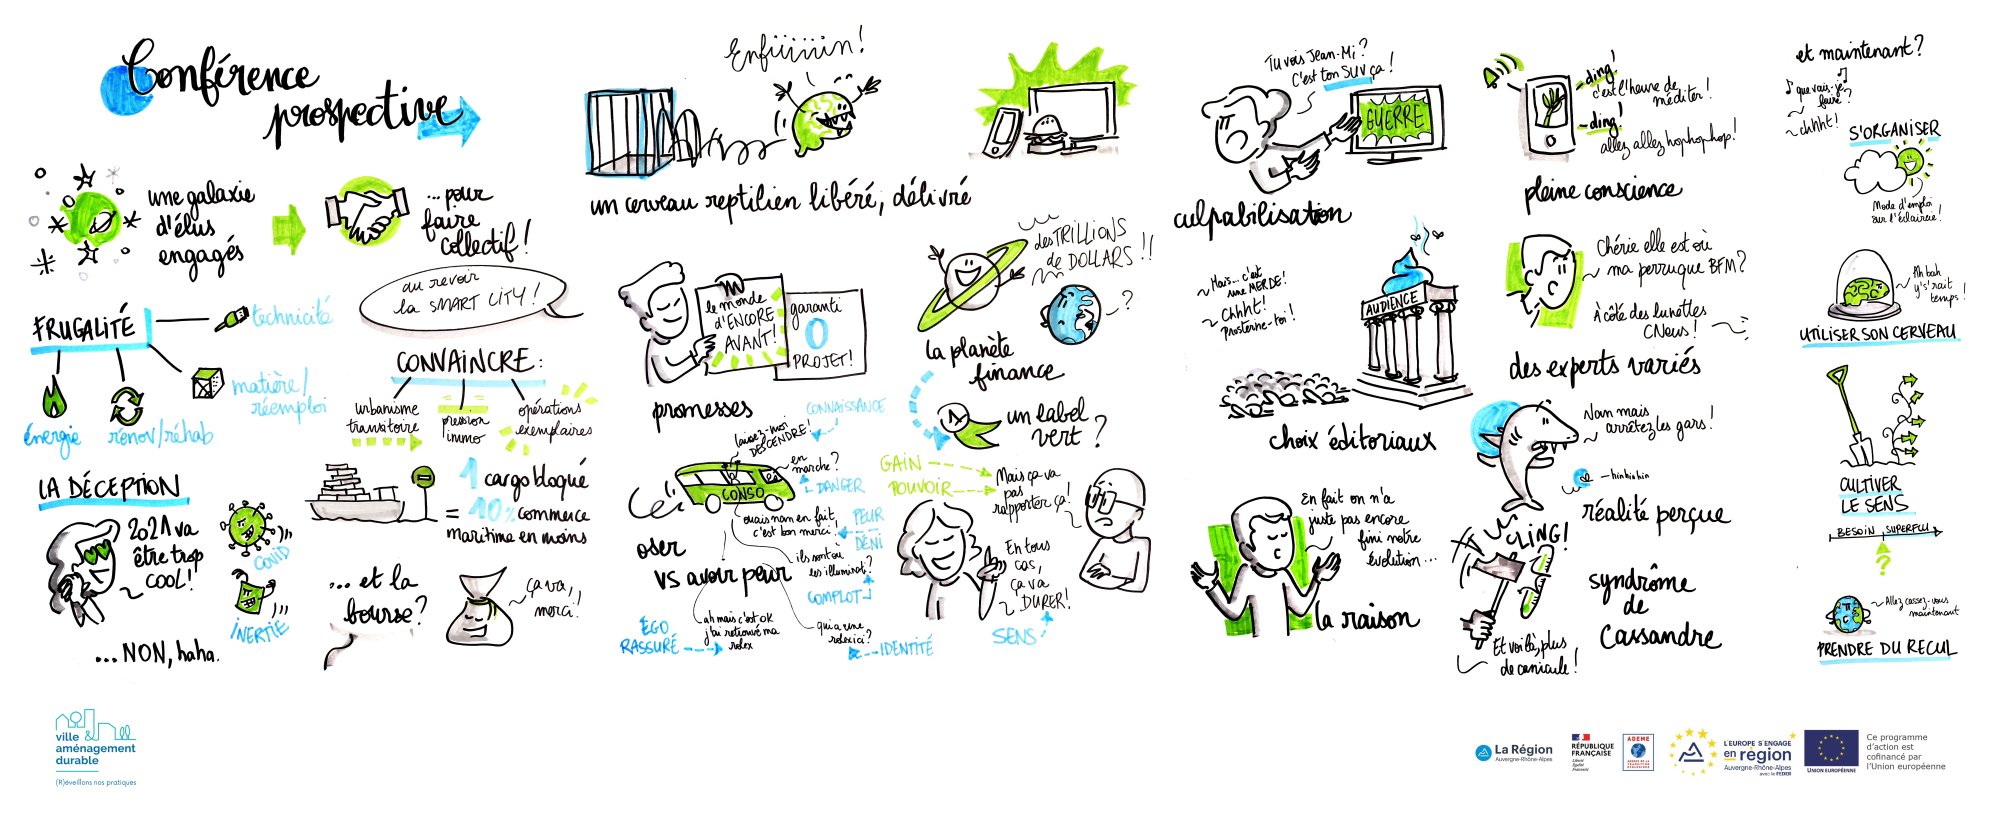 Conférence
prospective
une galaxie
d'élus
engagés
...pour
faire
collectif!
au revoir
la SMART CITY!
FRUGALITÉ
technicité
matière/
réemploi
énergie
rénov/réhab
CONVAINCRE:
urbanisme
transitoire
pression
immo
opérations
exemplaires
LA DÉCEPTION
2021 va
être trop
COOL!
COVID
INERTIE
...NON, haha.
1 cargo bloqué
= 10% commerce
maritime en moins
... et la
bourse?
ça va,
merci!
Enfiiiiiin!
un cerveau reptilien libéré, délivré
le monde
d'ENCORE
AVANT!
garanti
0
PROJET!
promesses
des TRILLIONS
de DOLLARS!!
?
la planète
finance
un label
vert?
CONNAISSANCE
laissez-moi
DESCENDRE!
en
marche?
DANGER
CONSO
ouais nan en fait
c'est bon merci!
PEUR
DÉNI
oser
VS avoir peur
ils sont où
les illuminat.?
COMPLOT
ÉGO
RASSURÉ
ah mais c'est ok
j'ai retrouvé ma
rolex
qui a une
rolex ici?
IDENTITÉ
GAIN
POUVOIR
Mais ça va
pas
rapporter ça!
En tous
cas,
ça va
DURER!
SENS
Tu vois Jean-Mi?
C'est ton SUV ça!
GUERRE
culpabilisation
Mais... c'est
une MERDE!
Chhht!
Prosterne-toi!
AUDIENCE
choix éditoriaux
En fait on n'a
juste pas encore
fini notre
évolution...
la raison
ding!
c'est l'heure de
méditer!
ding!
allez allez hophophop!
pleine conscience
Chérie elle est où
ma perruque BFM?
À côté des lunettes
CNews!
des experts variés
Nan mais
arrêtez les gars!
hinhinhin
réalité perçue
CLING!
Et voilà, plus
de canicule!
syndrôme
de
Cassandre
et maintenant?
que vais-je
faire?
chhht!
S'ORGANISER
Mode d'emploi
sur l'éclaircie!
Ah bah
y's'rait
temps!
UTILISER SON CERVEAU
CULTIVER
LE SENS
BESOIN SUPERFLU
?
Allez cassez-vous
maintenant
PRENDRE DU RECUL
ville
&
aménagement
durable
(R)éveillons nos pratiques
La Région
Auvergne-Rhône-Alpes
RÉPUBLIQUE
FRANÇAISE
Liberté
Égalité
Fraternité
ADEME
AGENCE DE LA
TRANSITION
ÉCOLOGIQUE
L'EUROPE S'ENGAGE
en région
Auvergne-Rhône-Alpes
avec le FEDER
UNION EUROPÉENNE
Ce programme
d'action est
cofinancé par
l'Union européenne